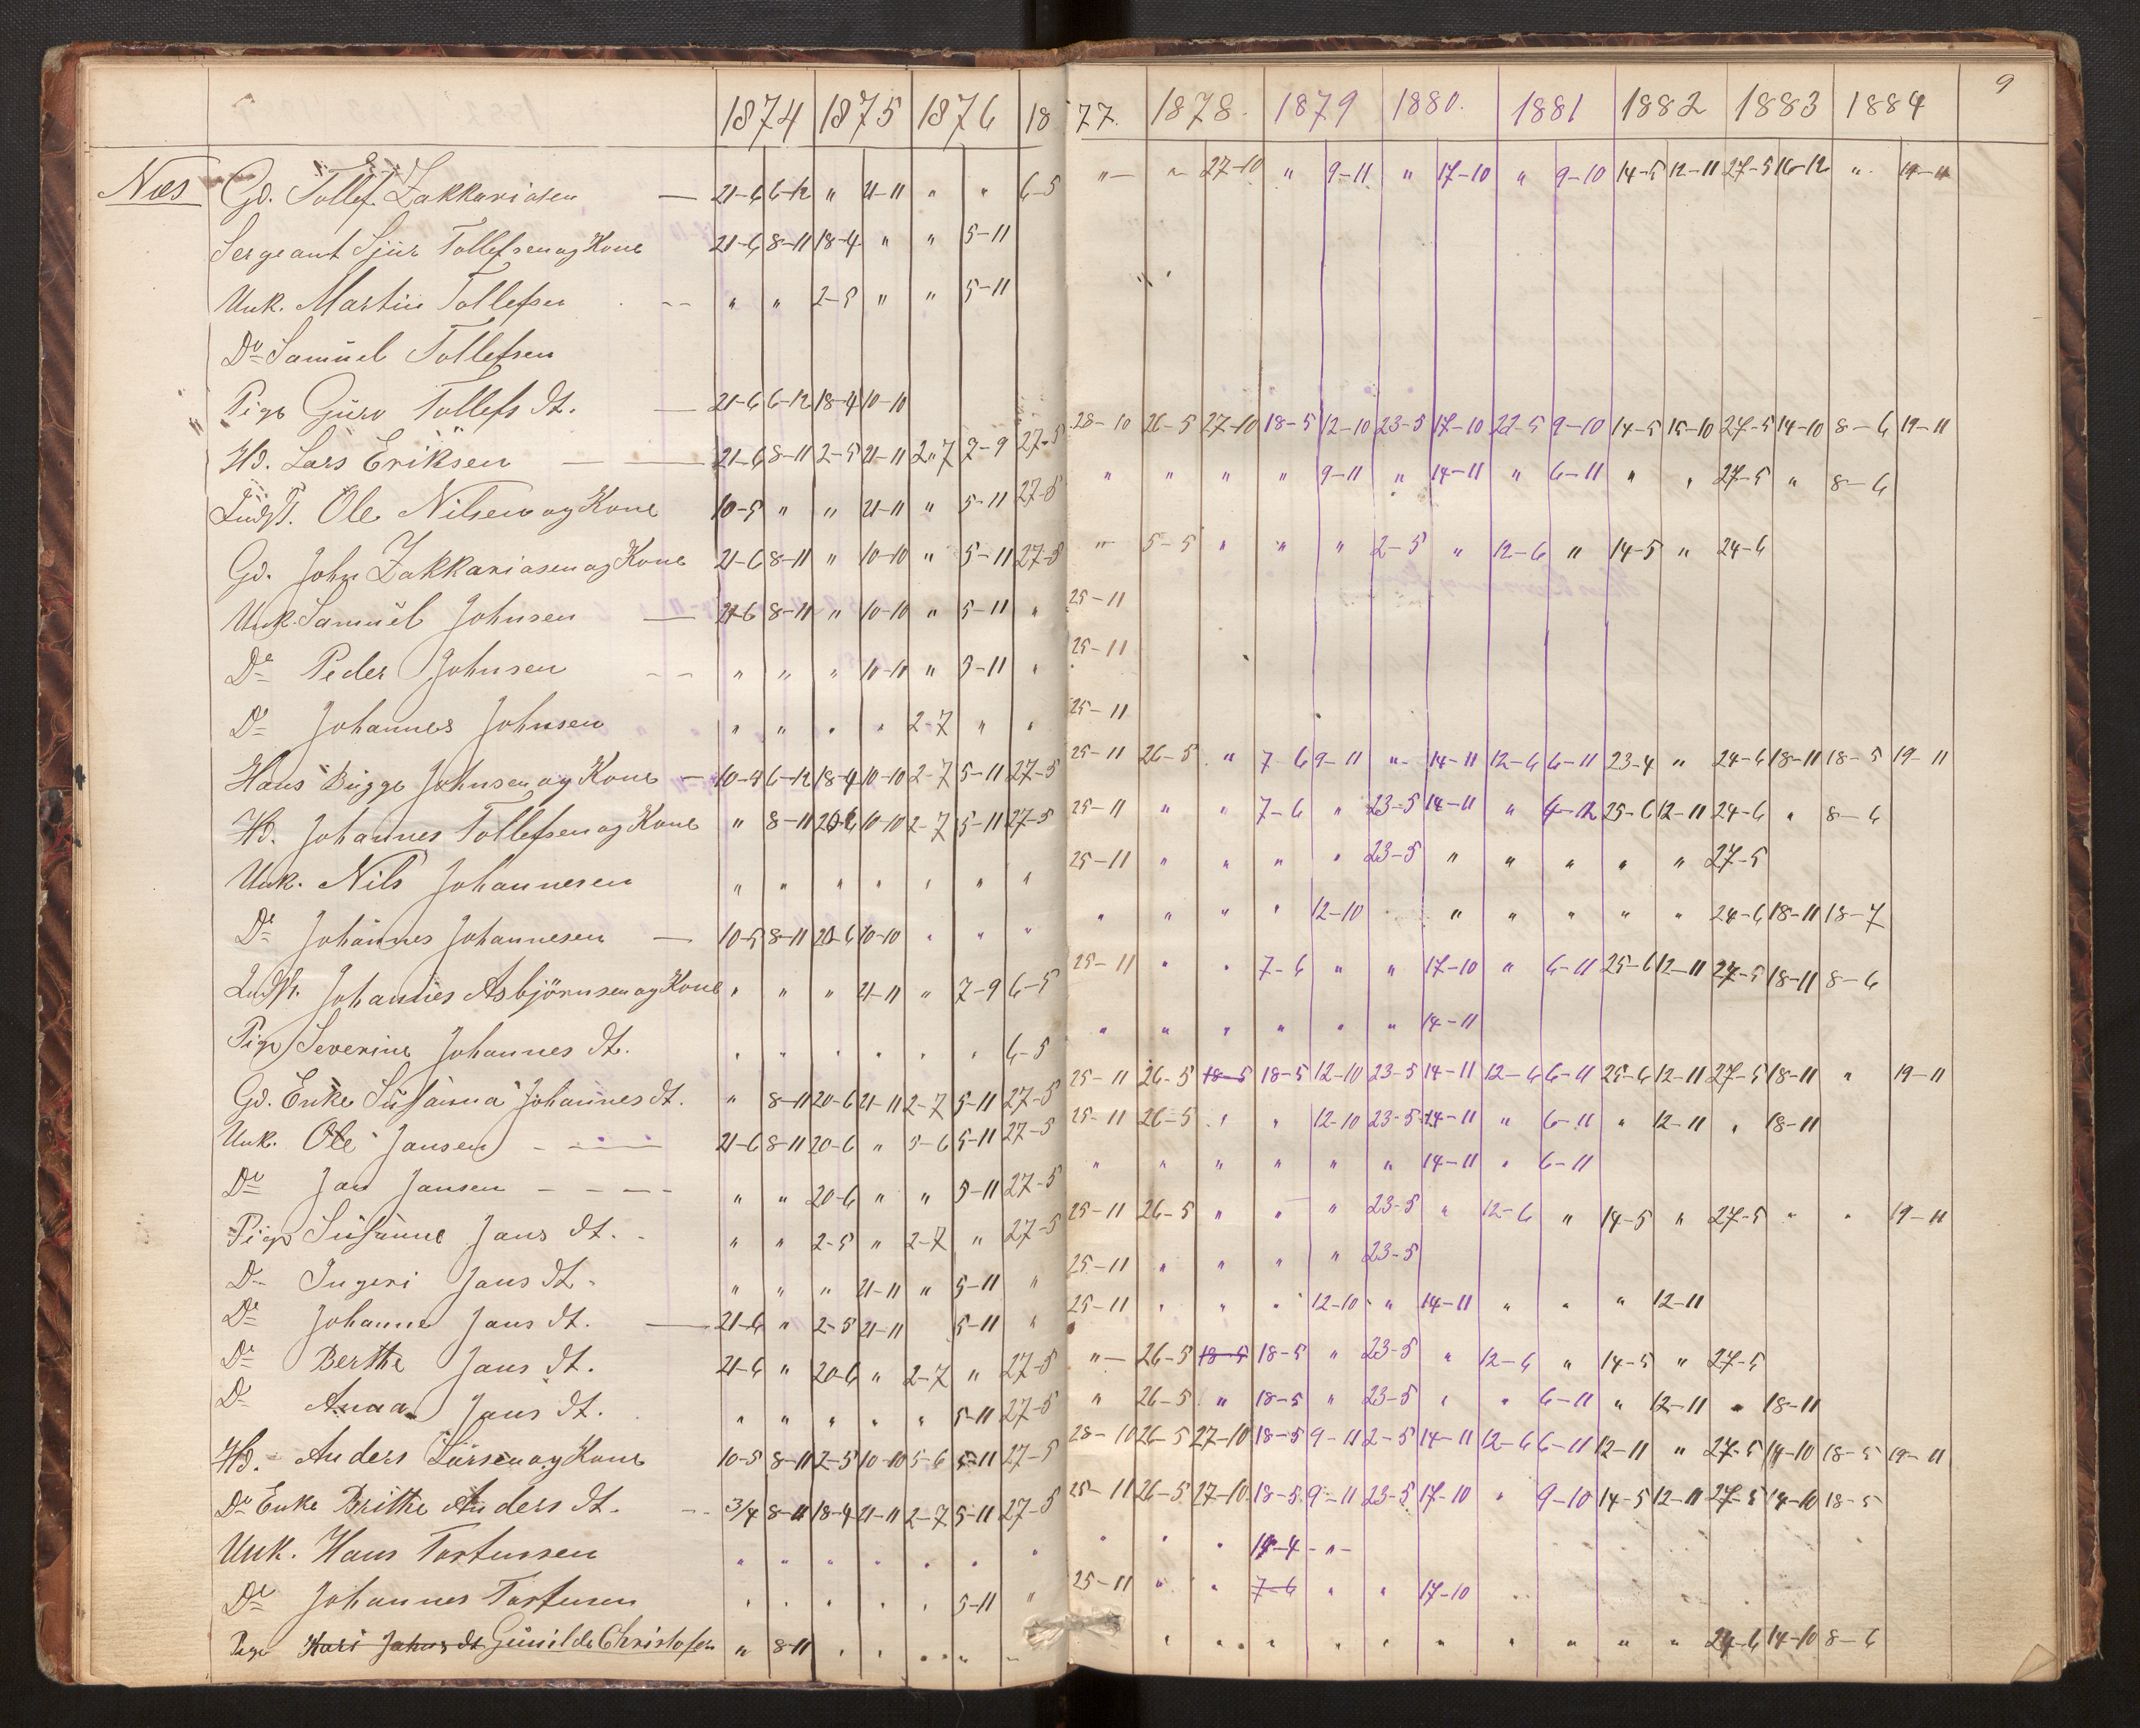 1874 1875 1876 18 77. 1878. 1879 1880. 1881 1882 1883 1884 9
Næs Gd. Tollef Zakkariasen — 21-6 6-12 " 21-11 " " 6-5 " " 27-10 " 9-11 " 17-10 " 9-10 14-5 12-11 27-5 16-12 " 19-11
Sergeant Sjur Tollefsen og Kone 21-6 8-11 18-4 " " 5-11
Unk. Martin Tollefsen " " 2-5 " " 5-11
Do Samuel Tollefsen
Pige Guro Tollefs dt. — 21-6 6-12 18-4 10-10
Hd. Lars Eriksen — 21-6 8-11 2-5 21-11 2-7 7-9 27-5 28-10 26-5 27-10 18-5 12-10 23-5 17-10 22-5 9-10 14-5 15-10 27-5 14-10 8-6 19-11
Indst. Ole Nilsen og Kone 10-5 " " 21-11 " 5-11 27-5 " " " " 9-11 " 14-11 " 6-11 " " 27-5 " 8-6
Gd. John Zakkariasen og Kone 21-6 8-11 " 10-10 " 5-11 27-5 " 5-5 " " " 2-5 " 12-6 " 14-5 " 24-6
Unk. Samuel Johnsen — 21-6 8-11 " 10-10 " 5-11 " 25-11
De Peder Johnsen " " " 10-10 " 5-11 " 25-11
De Johannes Johnsen " " " " 2-7 " " 25-11
Hans Bugge Johnsen og Kone — 10-5 6-12 18-4 10-10 2-7 5-11 27-5 25-11 26-5 " 7-6 9-11 " 14-11 12-6 6-11 23-4 " 24-6 18-11 18-5 19-11
Hd. Johannes Tollefsen og Kone " 8-11 20-6 10-10 2-7 5-11 27-5 25-11 " " 7-6 " 23-5 14-11 " 4-12 25-6 12-11 24-6 " 8-6
Unk. Nils Johannesen " " " " " " " 25-11 " " " " 23-5 " " " " " 27-5
De Johannes Johannesen — 10-5 8-11 20-6 10-10 " " " " " " " 12-10 " " " " " 24-6 18-11 18-7
Indst. Johannes Asbjørnsen og Kone " " " 21-11 " 7-9 6-5 25-11 " " 7-6 " " 17-10 " 6-11 25-6 12-11 27-5 18-11 8-6
Pige Severine Johannes dt. " " " " " " 6-5 " " " " " " 14-11
Gd. Enke Susanna Johannes dt. " 8-11 20-6 21-11 2-7 5-11 27-5 25-11 26-5 18-5 18-5 12-10 23-5 14-11 12-6 6-11 25-6 12-11 27-5 18-11 " 19-11
Unk. Ole Jansen — 21-6 8-11 20-6 " 5-6 5-11 27-5 25-11 26-5 " " 12-10 23-5 14-11 " 6-11 " 12-11 " 18-11
De Jan Jansen - - - - " " 20-6 " " 5-11 27-5 " " " " " " 14-11 " 6-11
Pige Susanne Jans dt. " " 2-5 " 2-7 " 27-5 25-11 26-5 " " " 23-5 " 12-6 " 14-5 " 27-5 " " 19-11
De Ingeri Jans dt. " " " 21-11 " 5-11 " 25-11 " " " " 23-5
De Johanne Jans dt. — 21-6 " 2-5 21-11 5-11 " 25-11 " " " 12-10 " 14-11 " " " 12-11
De Berthe Jans dt. 21-6 " 20-6 " 2-7 " 27-5 " 26-5 18-5 18-5 " 23-5 " 12-6 " 14-5 " 27-5
De Anna Jans dt. " " " " " 5-11 27-5 " 26-5 " 18-5 " 23-5 " " 6-11 " 12-11 " 18-11
Hd. Anders Larsen og Kone 10-5 8-11 2-5 10-10 5-6 5-11 27-5 28-10 26-5 27-10 18-5 9-11 2-5 14-11 12-6 6-11 12-11 " 27-5 14-10 18-5 19-11
De Enke Brithe Anders dt. 3/4 8-11 18-4 21-11 2-7 5-11 27-5 25-11 26-5 27-10 18-5 9-11 23-5 17-10 " 9-10 14-5 12-11 27-5 14-10 18-5
Unk. Hans Torstensen " " " " " " " " " " 14-4 - " -
De Johannes Torstensen " " " " " 5-11 " 25-11 " " 7-6 " " 17-10
Pige Kari Johans dt Gunilde Christofers " 8-11 " " " " " " " " " " " " " " " 24-6 14-10 8-6